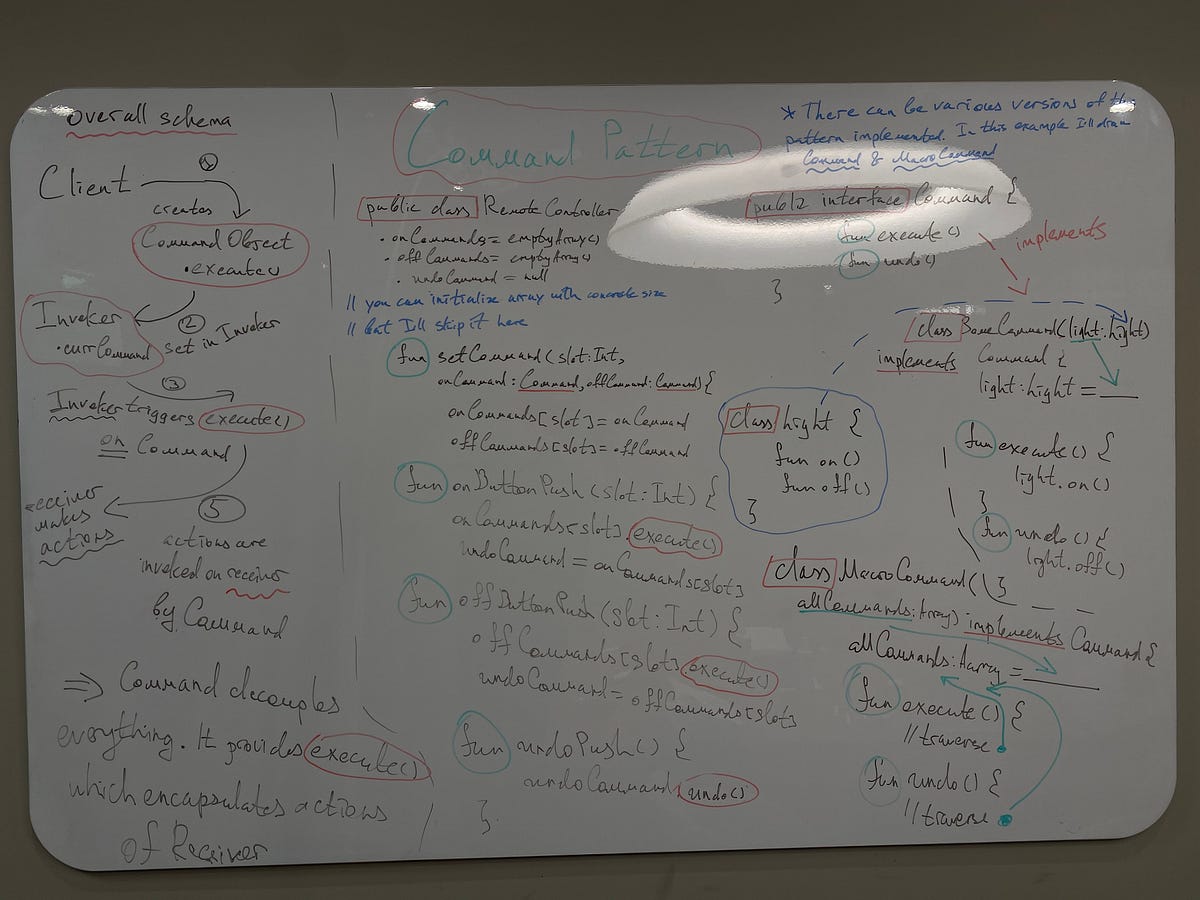 overall schema
1
Client
creates
Command Object
• execute()
Invoker
• currCommand
2
set in Invoker
3
Invoker triggers execute()
on Command
receiver
makes
actions
5
actions are
invoked on receiver
by Command
=> Command decouples
everything. It provides execute()
which encapsulates actions
of Receiver
Command Pattern
public class RemoteController
• onCommands = emptyArray()
• offCommands = emptyArray()
• undoCommand = null
// you can initialize array with concrete size
// but I'll skip it here
fun setCommand(slot: Int,
onCommand: Command, offCommand: Command) {
onCommands[slot] = onCommand
offCommands[slot] = offCommand
fun onButtonPush(slot: Int) {
onCommands[slot].execute()
undoCommand = onCommands[slot]
fun offButtonPush(slot: Int) {
offCommands[slot].execute()
undoCommand = offCommands[slot]
fun undoPush() {
undoCommand.undo()
}
* There can be various versions of this
pattern implemented. In this example I'll draw
Command & MacroCommand
public interface Command {
fun execute()
fun undo()
}
implements
class SomeCommand(light: Light)
implements Command {
light: Light = ___
fun execute() {
light.on()
}
fun undo() {
light.off()
}
class Light {
fun on()
fun off()
}
class MacroCommand(
allCommands: Array) implements Command {
allCommands: Array = ___
fun execute() {
// traverse
fun undo() {
// traverse